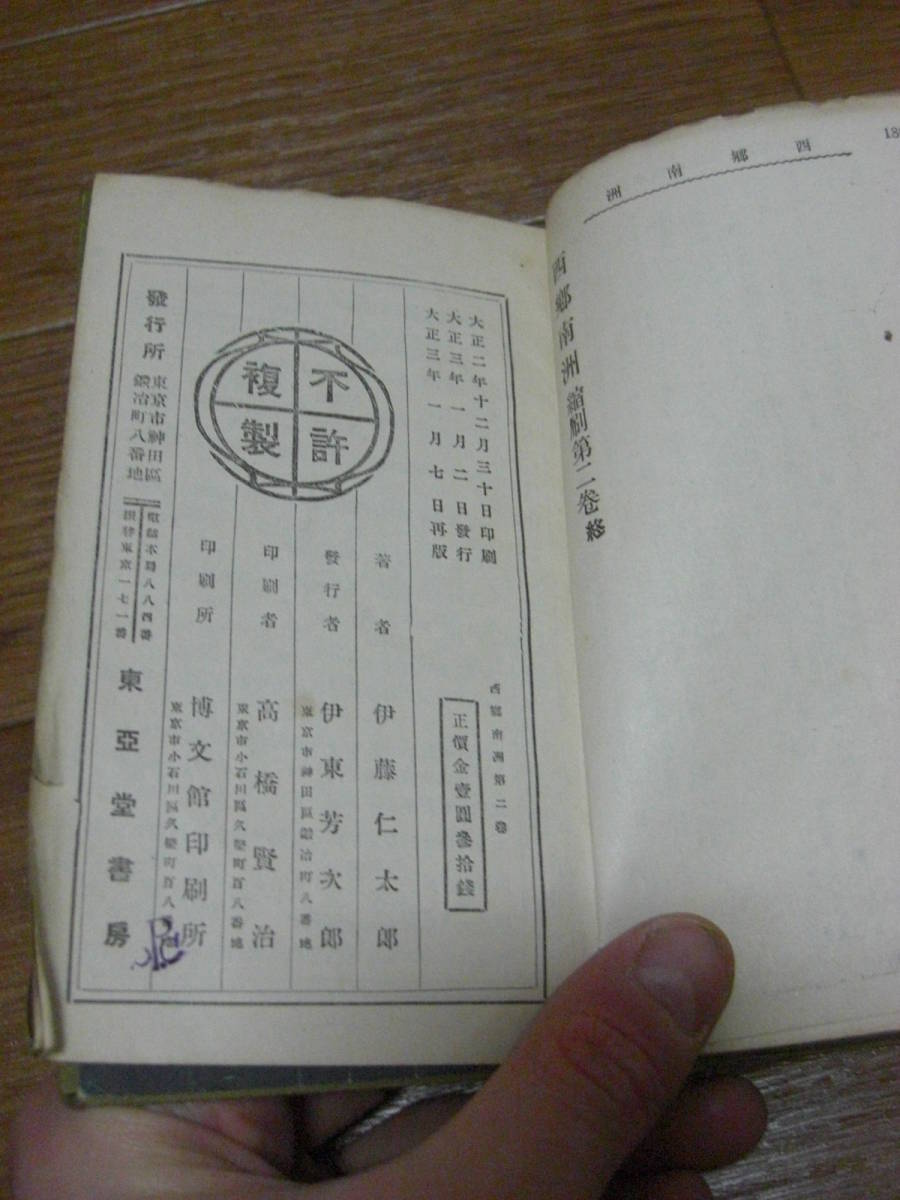 西鄕南洲
西鄕南洲 縮刷第二卷 終
西鄕南洲第二卷
正價金壹圓參拾錢
大正二年十二月三十日印刷
大正三年一月二日發行
大正三年一月七日再版
不許
複製
著者 伊藤仁太郎
發行者 伊東芳次郎
東京市神田區鍛冶町八番地
印刷者 高橋賢治
東京市小石川區久堅町百八番地
印刷所 博文館印刷所
東京市小石川區久堅町百八
發行所
東京市神田區
鍛冶町八番地
電話本局八八四番
振替東京一七一番
東亞堂書房